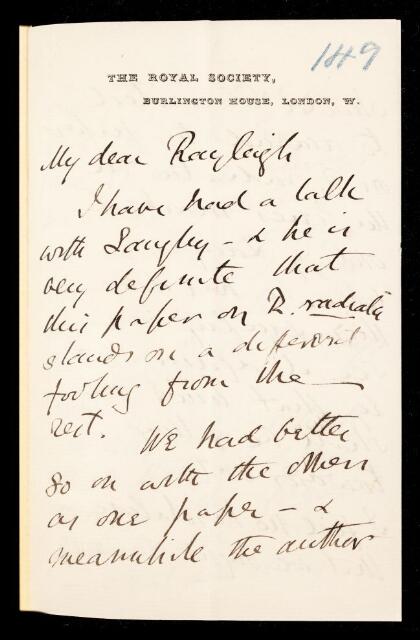 149
THE ROYAL SOCIETY,
BURLINGTON HOUSE, LONDON, W.
My dear Rayleigh
I have had a talk
with Langley - & he is
very definite that
this paper on R. radiata
stands on a different
footing from the
rest. We had better
go on with the others
as one paper - &
meanwhile the author